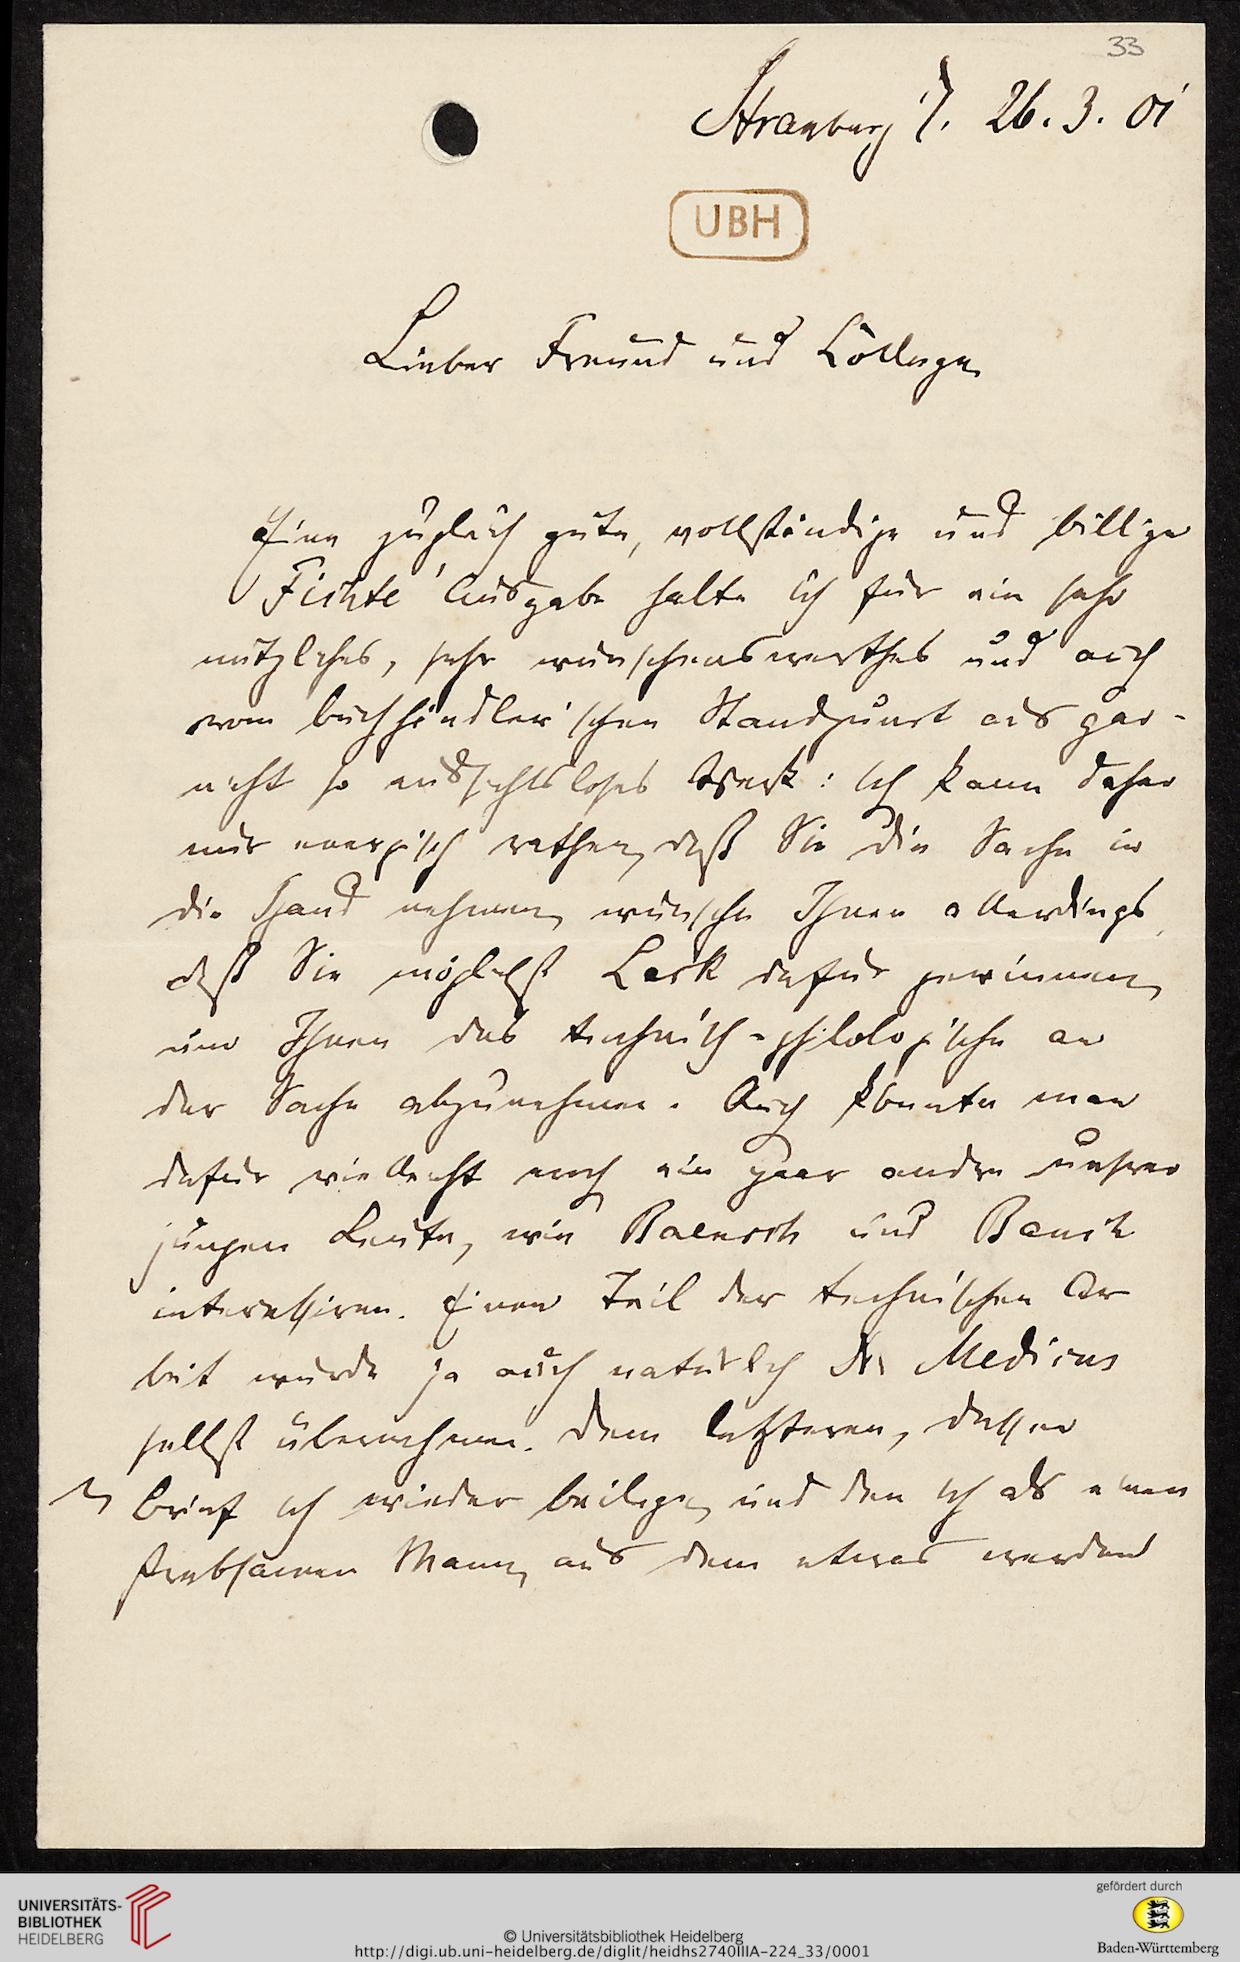 33
Strassburg i/. 26. 3. 01
UBH
Lieber Freund und College,
Eine zugleich gute, vollständige und billige
Fichte'Ausgabe halte ich für ein sehr
nützliches, sehr wünschenswerthes und auch
vom buchhändler'schen Standpunct aus gar-
nicht so aussichtsloses Werk: ich kann daher
nur energisch rathen, daß Sie die Sache in
die Hand nehmen, wünsche Ihnen allerdings,
daß Sie möglichst Lask dafür gewinnen,
um Ihnen das technisch-philologische an
der Sache abzunehmen. Auch könnte man
dafür vielleicht noch ein paar andre unsrer
jungen Leute, wie Baensch und Bauch
interessiren. Einen Teil der technischen Ar
beit würde ja auch natürlich Dr Medicus
selbst übernehmen. Dem letzteren, dessen
Brief ich wieder beilege, und den ich als einen
strebsamen Mann, aus dem etwas werden
UNIVERSITÄTS-
BIBLIOTHEK
HEIDELBERG
© Universitätsbibliothek Heidelberg
http://digi.ub.uni-heidelberg.de/diglit/heidhs2740IIIA-224_33/0001
gefördert durch
Baden-Württemberg